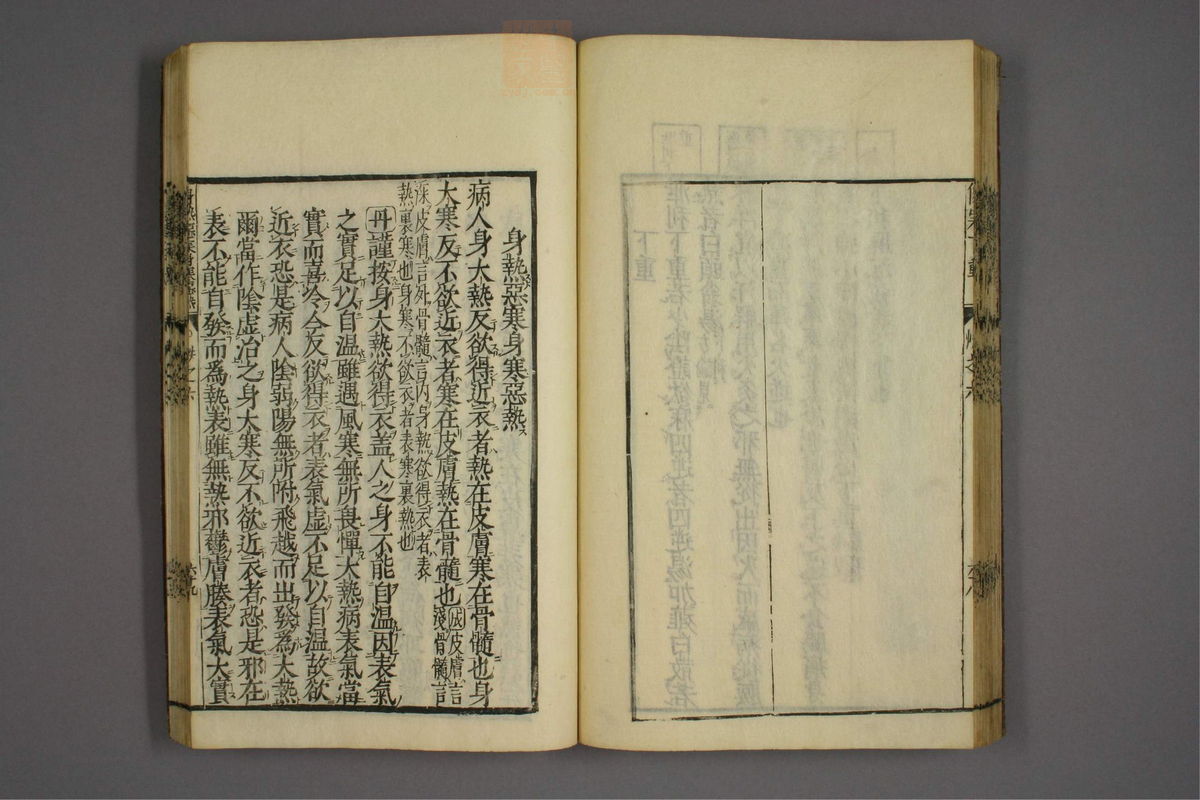 身熱惡寒身寒惡熱
病人身大熱反欲得近衣者熱在皮膚寒在骨髓也身
大寒反不欲近衣者寒在皮膚熱在骨髓也成皮膚言
淺骨髓言
深皮膚言外骨髓言内身熱欲得衣者表
熱裏寒也身寒不欲衣者表寒裏熱也
丹謹按身大熱欲得衣盖人之身不能自温因表氣
之實足以自温雖遇風寒無所畏憚大熱病表氣當
實而喜冷今反欲得衣者表氣虚不足以自温故欲
近衣恐是病人陰弱陽無所附飛越而出發為大熱
爾當作陰虚治之身大寒反不欲近衣者恐是邪在
表不能自發而為熱表雖無熱邪鬱膚腠表氣大實